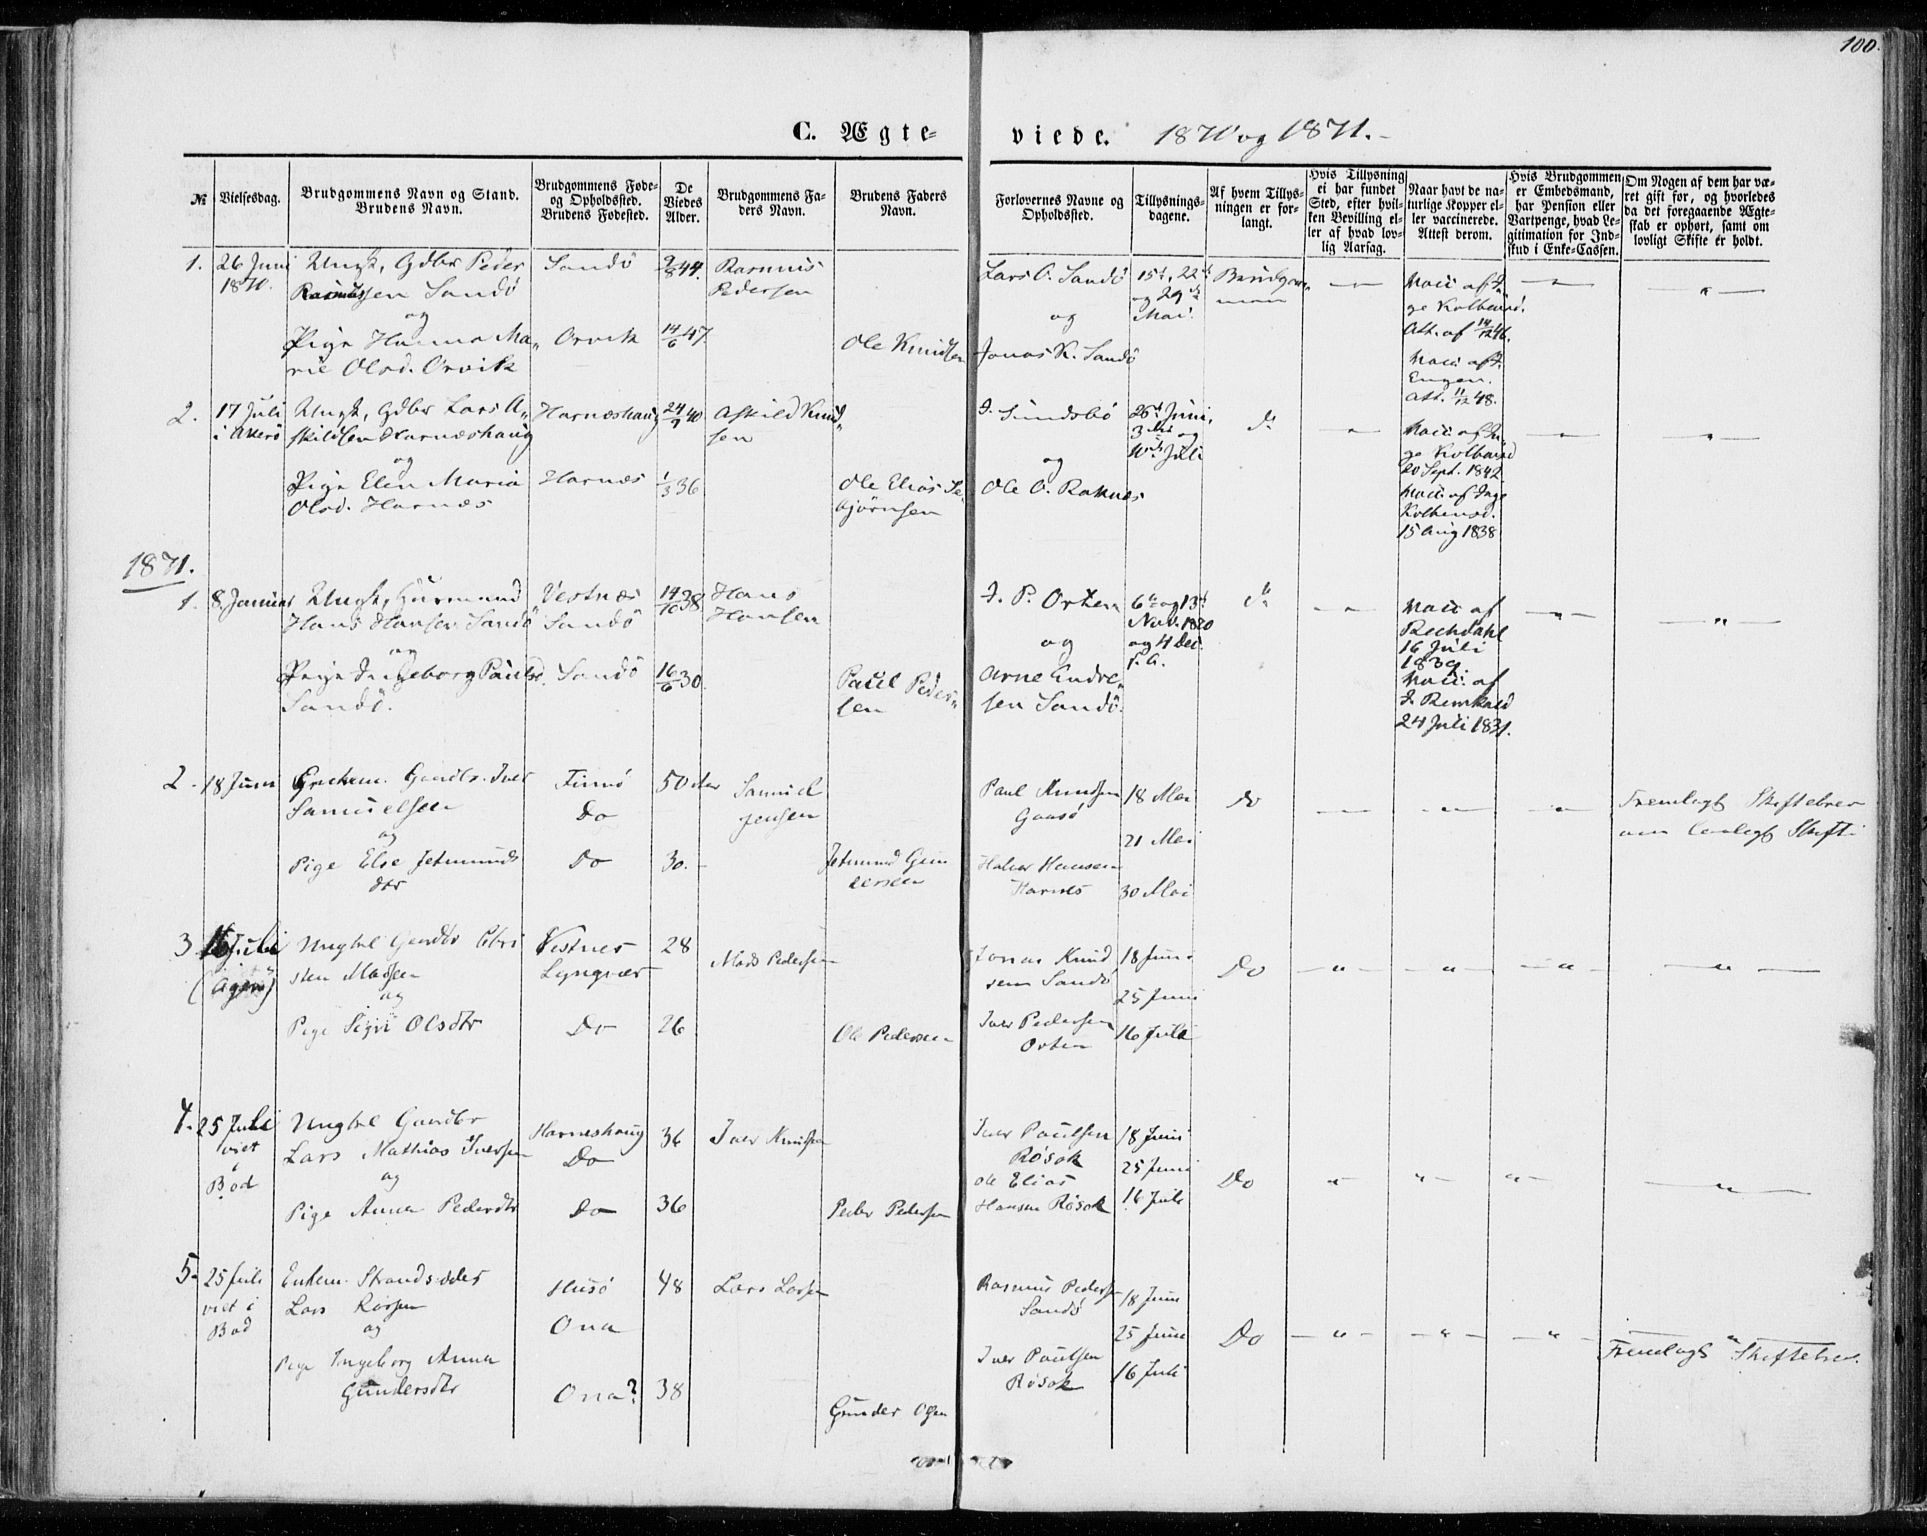 100.
C. Ægte-
viede. 1870 og 1871.-
№
Vielsesdag.
Brudgommens Navn og Stand.
Brudens Navn.
Brudgommens Føde-
og Opholdssted.
Brudens Fødested.
De
Viedes
Alder.
Brudgommens Fa-
ders Navn.
Brudens Faders
Navn.
Forlovernes Navne og
Opholdssted.
Tillysnings-
dagene.
Af hvem Tillys-
ningen er for-
langt.
Hvis Tillysning
ei har fundet
Sted, efter hvil-
ken Bevilling el-
ler af hvad lov-
lig Aarsag.
Naar havt de na-
turlige Kopper el-
ler vaccinerede.
Attest derom.
Hvis Brudgommen
er Embedsmand,
har Pension eller
Vartpenge, hvad Le-
gitimation for Ind-
skud i Enke-Cassen.
Om Nogen af dem har væ-
ret gift før, og hvorledes
da det foregaaende Ægte-
skab er ophørt, samt om
lovligt Skifte er holdt.
1.
26 Juni
1870.
Ungk, Gdbr Peder
Rasmussen Sandö
og
Pige Hanna Ma„
rie Olsd. Orvik
Sandö
Orvik
2/8 44.
14/6 47.
Rasmus
Pedersen
Ole Knudsen
Lars O. Sandö
og
Jonas K. Sandö
15de, 22de
og 29de
Mai.
Brudgom„
men
Vacc. af In„
ge Kolbensd.
Att. af 14/12 46.
Vacc. af J.
Engen.
Att. 11/12 48.
2.
17 Juli
i Akerö
Ungk, Gdbr Lars A„
skildsen Harnæshaug
og
Pige Elen Maria
Olsd. Harnæs
Harnæshaug
Harnæs
24/7 40
1/3 36
Askild Knud„
sen
Ole Elias Se„
bjørnsen
J. Sundsbö
og
Ole O. Raknæs
26de Juni,
3die og
10de Juli
do
Vacc. af In„
ge Kolbensd
20 Sept. 1842
Vacc. af Inge
Kolbensd.
15 Aug 1838
1871.
1.
8. Januar
Ungk, Husmand
Hans Hansen Sandö
og
Pige Ingeborg Paulsd.
Sandö.
Vestnæs
Sandö
Sandö
14/10 38
16/6 30.
Hans
Hansen
Paul Peder„
sen
J. P. Orten
og
Arne Endre„
sen Sandö.
6te og 13de
Nov. 1870
og 4 Dec.
s. A.
do
Vacc. af
Rechdahl
16 Juli
1839.
Vacc. af
24 Juli 1831.
2.
18 Juni
Enkem. Gaardb. Iver
Samuelsen
og
Pige Else Jetmunds
dtr
Finnö
Do
Do
50 Aar
30.
Samuel
Jensen
Jetmund Gun
dersen
Paul Knudsen
Gaasö
Halvor Hansen
Harnes
18 Mai
21 Mai
30 Mai
Do
Fremlagt Skiftebrev
om lovligt Skifte
3
16 Juli
(Agerö)
Ungkl Gaardbr Chri
sten Madsen
og
Pige Sigri Olsdtr
Vestnes
Lyngvær
Do
28
26
Mads Pedersen
Ole Pedersen
Jonas Knud
sen Sandö
Iver Pedersen
Orten
18 Juni
25 Juni
16 Juli
Do
4.
25 Juli
viet
i
Bod
Ungkl Gaardbr
Lars Mathias Iversen
og
Pige Anna Pedersdtr
Harneshaug
Do
Do
36
36
Iver Knudsen
Peder Pedersen
Iver Paulsen
Rösok
Ole Elias
Hansen Rösok
18 Juni
25 Juni
16 Juli
Do
5.
25 Juli
viet i
Bod
Enkem. Strandsidder
Lars Larsen
og
Pige Ingeborg Anna
Gundersdtr
Husö
Ona
Ona?
48
38
Lars Larsen
Gunder Olsen
Rasmus Pedersen
Sandö
Iver Paulsen
Rösok
18 Juni
25 Juni
16 Juli
Do
Fremlagt Skiftebrev.